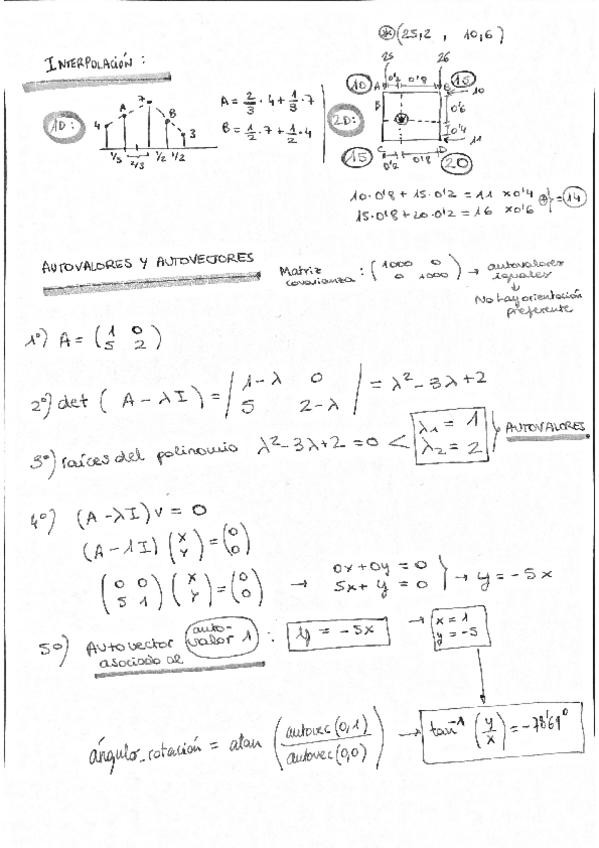 ⊛(25,2 , 10,6)
INTERPOLACIÓN :
1D:
4 A 7 B 3
1/3 2/3 1/2 1/2
A = 2/3 · 4 + 1/3 · 7
B = 1/2 · 7 + 1/2 · 4
2D:
25 26
10 A 0'2 0'8 B 15
10
B
0'6
0'4
11
C D
15 0'2 0'8 20
10·0'8 + 15·0'2 = 11 x0'4
15·0'8 + 20·0'2 = 16 x0'6
⊕} = 14
AUTOVALORES Y AUTOVECTORES
Matriz covarianza : (1000 0 / 0 1000) → autovalores iguales
↓
No hay orientación preferente
1º) A = (1 0 / 5 2)
2º) det ( A - λI ) = |1-λ 0 / 5 2-λ| = λ² - 3λ + 2
3º) raíces del polinomio λ² - 3λ + 2 = 0 < λ₁ = 1
λ₂ = 2 } AUTOVALORES
4º) (A - λI) v = 0
(A - 1I) (x / y) = (0 / 0)
(0 0 / 5 1) (x / y) = (0 / 0) → 0x + 0y = 0
5x + y = 0 } → y = -5x
5º) Autovector asociado al autovalor 1 : y = -5x → x = 1
y = -5
ángulo_rotación = atan (autovec(0,1) / autovec(0,0)) → tan⁻¹ (y/x) = -78'69º